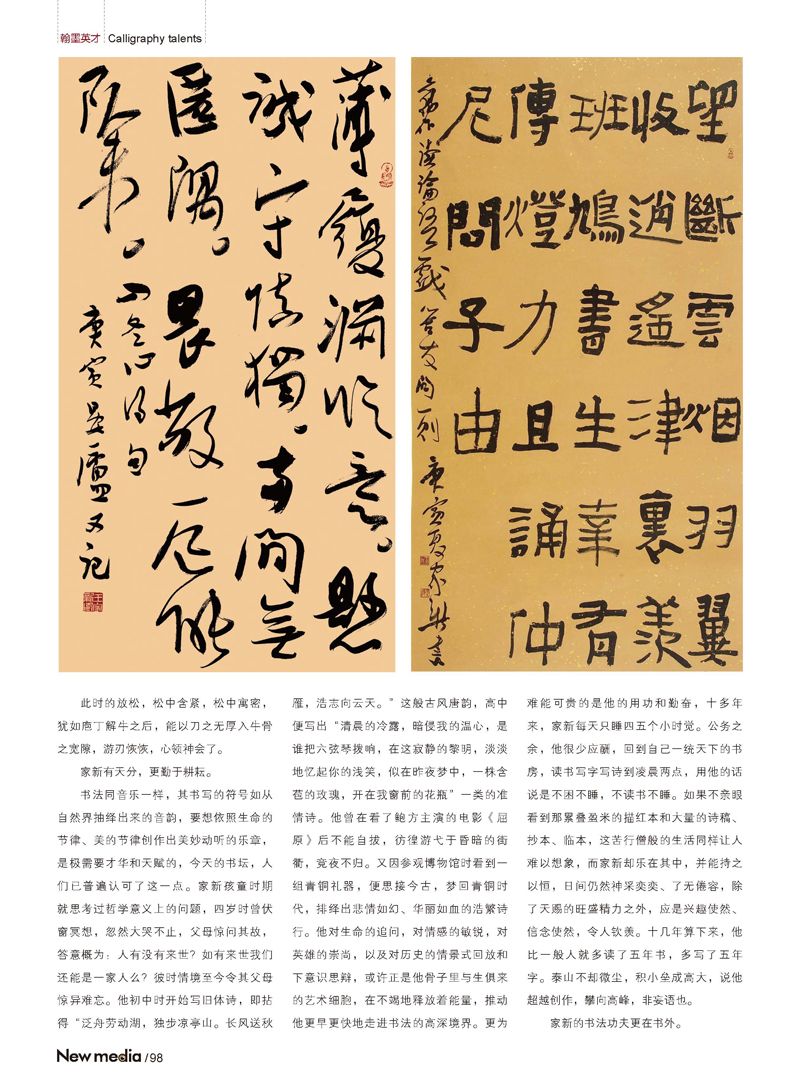 翰墨英才 Calligraphy talents
薄履临意。懸
诚守慎獨。間無
匿隅。畏敬一
冬心得句
庚寅又记
望斷雲烟羽翼
收逍遙津裏羨
班鳩書生有
傳燈力且誦仲
尼問子由
旧作读论语戏答友问一则 庚寅夏家新書
此时的放松，松中含紧，松中寓密，
犹如庖丁解牛之后，能以刀之无厚入牛骨
之宽隙，游刃恢恢，心领神会了。
家新有天分，更勤于耕耘。
书法同音乐一样，其书写的符号如从
自然界抽绎出来的音韵，要想依照生命的
节律、美的节律创作出美妙动听的乐章，
是极需要才华和天赋的，今天的书坛，人
们已普遍认可了这一点。家新孩童时期
就思考过哲学意义上的问题，四岁时曾伏
窗冥想，忽然大哭不止，父母惊问其故，
答意概为：人有没有来世？如有来世我们
还能是一家人么？彼时情境至今令其父母
惊异难忘。他初中时开始写旧体诗，即拈
得“泛舟劳动湖，独步凉亭山。长风送秋
雁，浩志向云天。”这般古风唐韵，高中
便写出“清晨的冷露，暗侵我的温心，是
谁把六弦琴拨响，在这寂静的黎明，淡淡
地忆起你的浅笑，似在昨夜梦中，一株含
苞的玫瑰，开在我窗前的花瓶”一类的准
情诗。他曾在看了鲍方主演的电影《屈
原》后不能自拔，彷徨游弋于昏暗的街
衢，竟夜不归。又因参观博物馆时看到一
组青铜礼器，便思接今古，梦回青铜时
代，排绎出悲情如幻、华丽如血的浩繁诗
行。他对生命的追问，对情感的敏锐，对
英雄的崇尚，以及对历史的情景式回放和
下意识思辩，或许正是他骨子里与生俱来
的艺术细胞，在不竭地释放着能量，推动
他更早更快地走进书法的高深境界。更为
难能可贵的是他的用功和勤奋，十多年
来，家新每天只睡四五个小时觉。公务之
余，他很少应酬，回到自己一统天下的书
房，读书写字写诗到凌晨两点，用他的话
说是不困不睡，不读书不睡。如果不亲眼
看到那累叠盈米的描红本和大量的诗稿、
抄本、临本，这苦行僧般的生活同样让人
难以想象，而家新却乐在其中，并能持之
以恒，日间仍然神采奕奕、了无倦容，除
了天赐的旺盛精力之外，应是兴趣使然、
信念使然，令人钦羡。十几年算下来，他
比一般人就多读了五年书，多写了五年
字。泰山不却微尘，积小垒成高大，说他
超越创作，攀向高峰，非妄语也。
家新的书法功夫更在书外。
New media /98